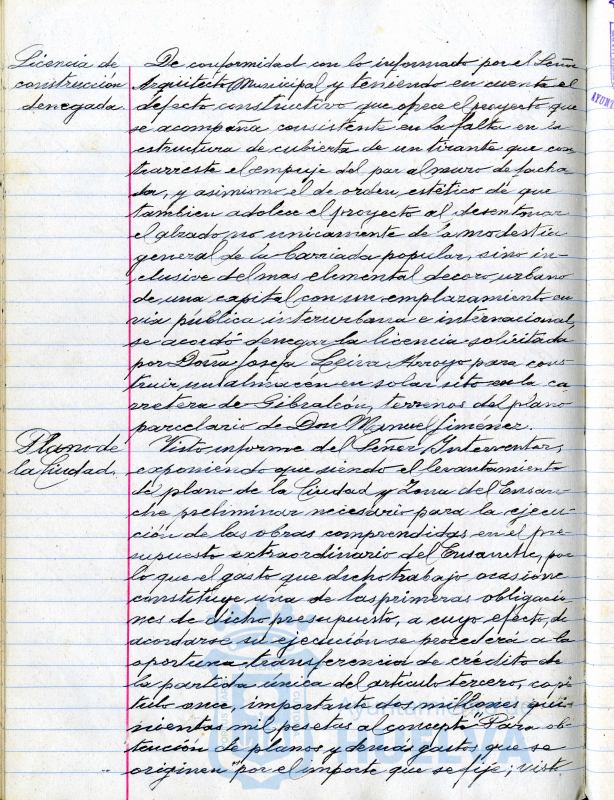 Licencia de
construcción
denegada.
De conformidad con lo informado por el Señor
Arquitecto Municipal y teniendo en cuenta el
defecto constructivo que ofrece el proyecto que
se acompaña consistente en la falta en la
estructura de cubierta de un tirante que con
trarreste el empuje del par al muro de facha
da, y asimismo el de orden estético de que
tambien adolece el proyecto al desentonar
el alzado, no unicamente de la modestia
general de la barriada popular, sino in-
clusive del mas elemental decoro urbano
de una capital con un emplazamiento en
via pública interurbana e internacional,
se acordó denegar la licencia solicitada
por Doña Josefa Leiva Arroyo para cons-
truir un almacen en solar sito en la ca
rretera de Gibraleón, terrenos del plano
parcelario de Don Manuel Jiménez.
Plano de
la Ciudad.
Visto informe del Señor Interventor,
exponiendo que siendo el levantamiento
de plano de la Ciudad y Zona del Ensan-
che preliminar necesario para la ejecu-
ción de las obras comprendidas en el pre-
supuesto extraordinario del Ensanche, por
lo que el gasto que dicho trabajo ocasione
constituye una de las primeras obligacio-
nes de dicho presupuesto, a cuyo efecto, de
acordarse su ejecución se procederá a la
oportuna transferencia de crédito de
la partida única del articulo tercero, capí-
tulo once, importante dos millones qui-
nientas mil pesetas al concepto "Para ob-
tención de planos y demas gastos que se
originen" por el importe que se fije; visto
Ayuntamiento de
HUELVA